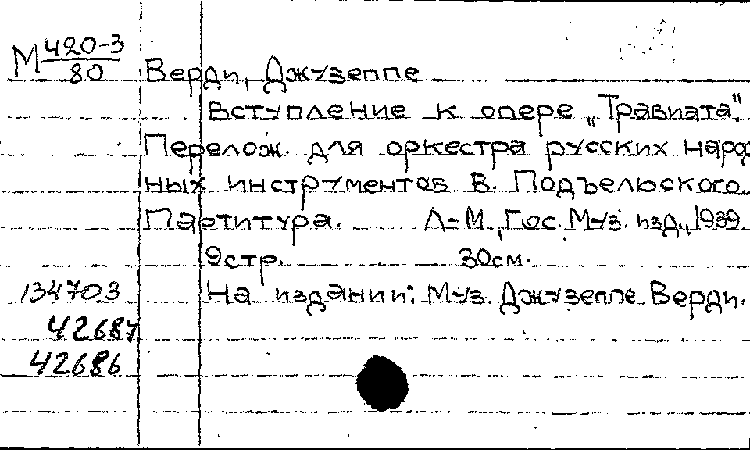 М 420-3
80
Верди, Джузеппе
Вступление к опере „Травиата".
Перелож. для оркестра русских народ
ных инструментов В. Подъельского.
Партитура. Л-М., Гос. Муз. изд., 1939.
9стр. 30см.
134703 На издании: Муз. Джузеппе Верди.
42687
42686